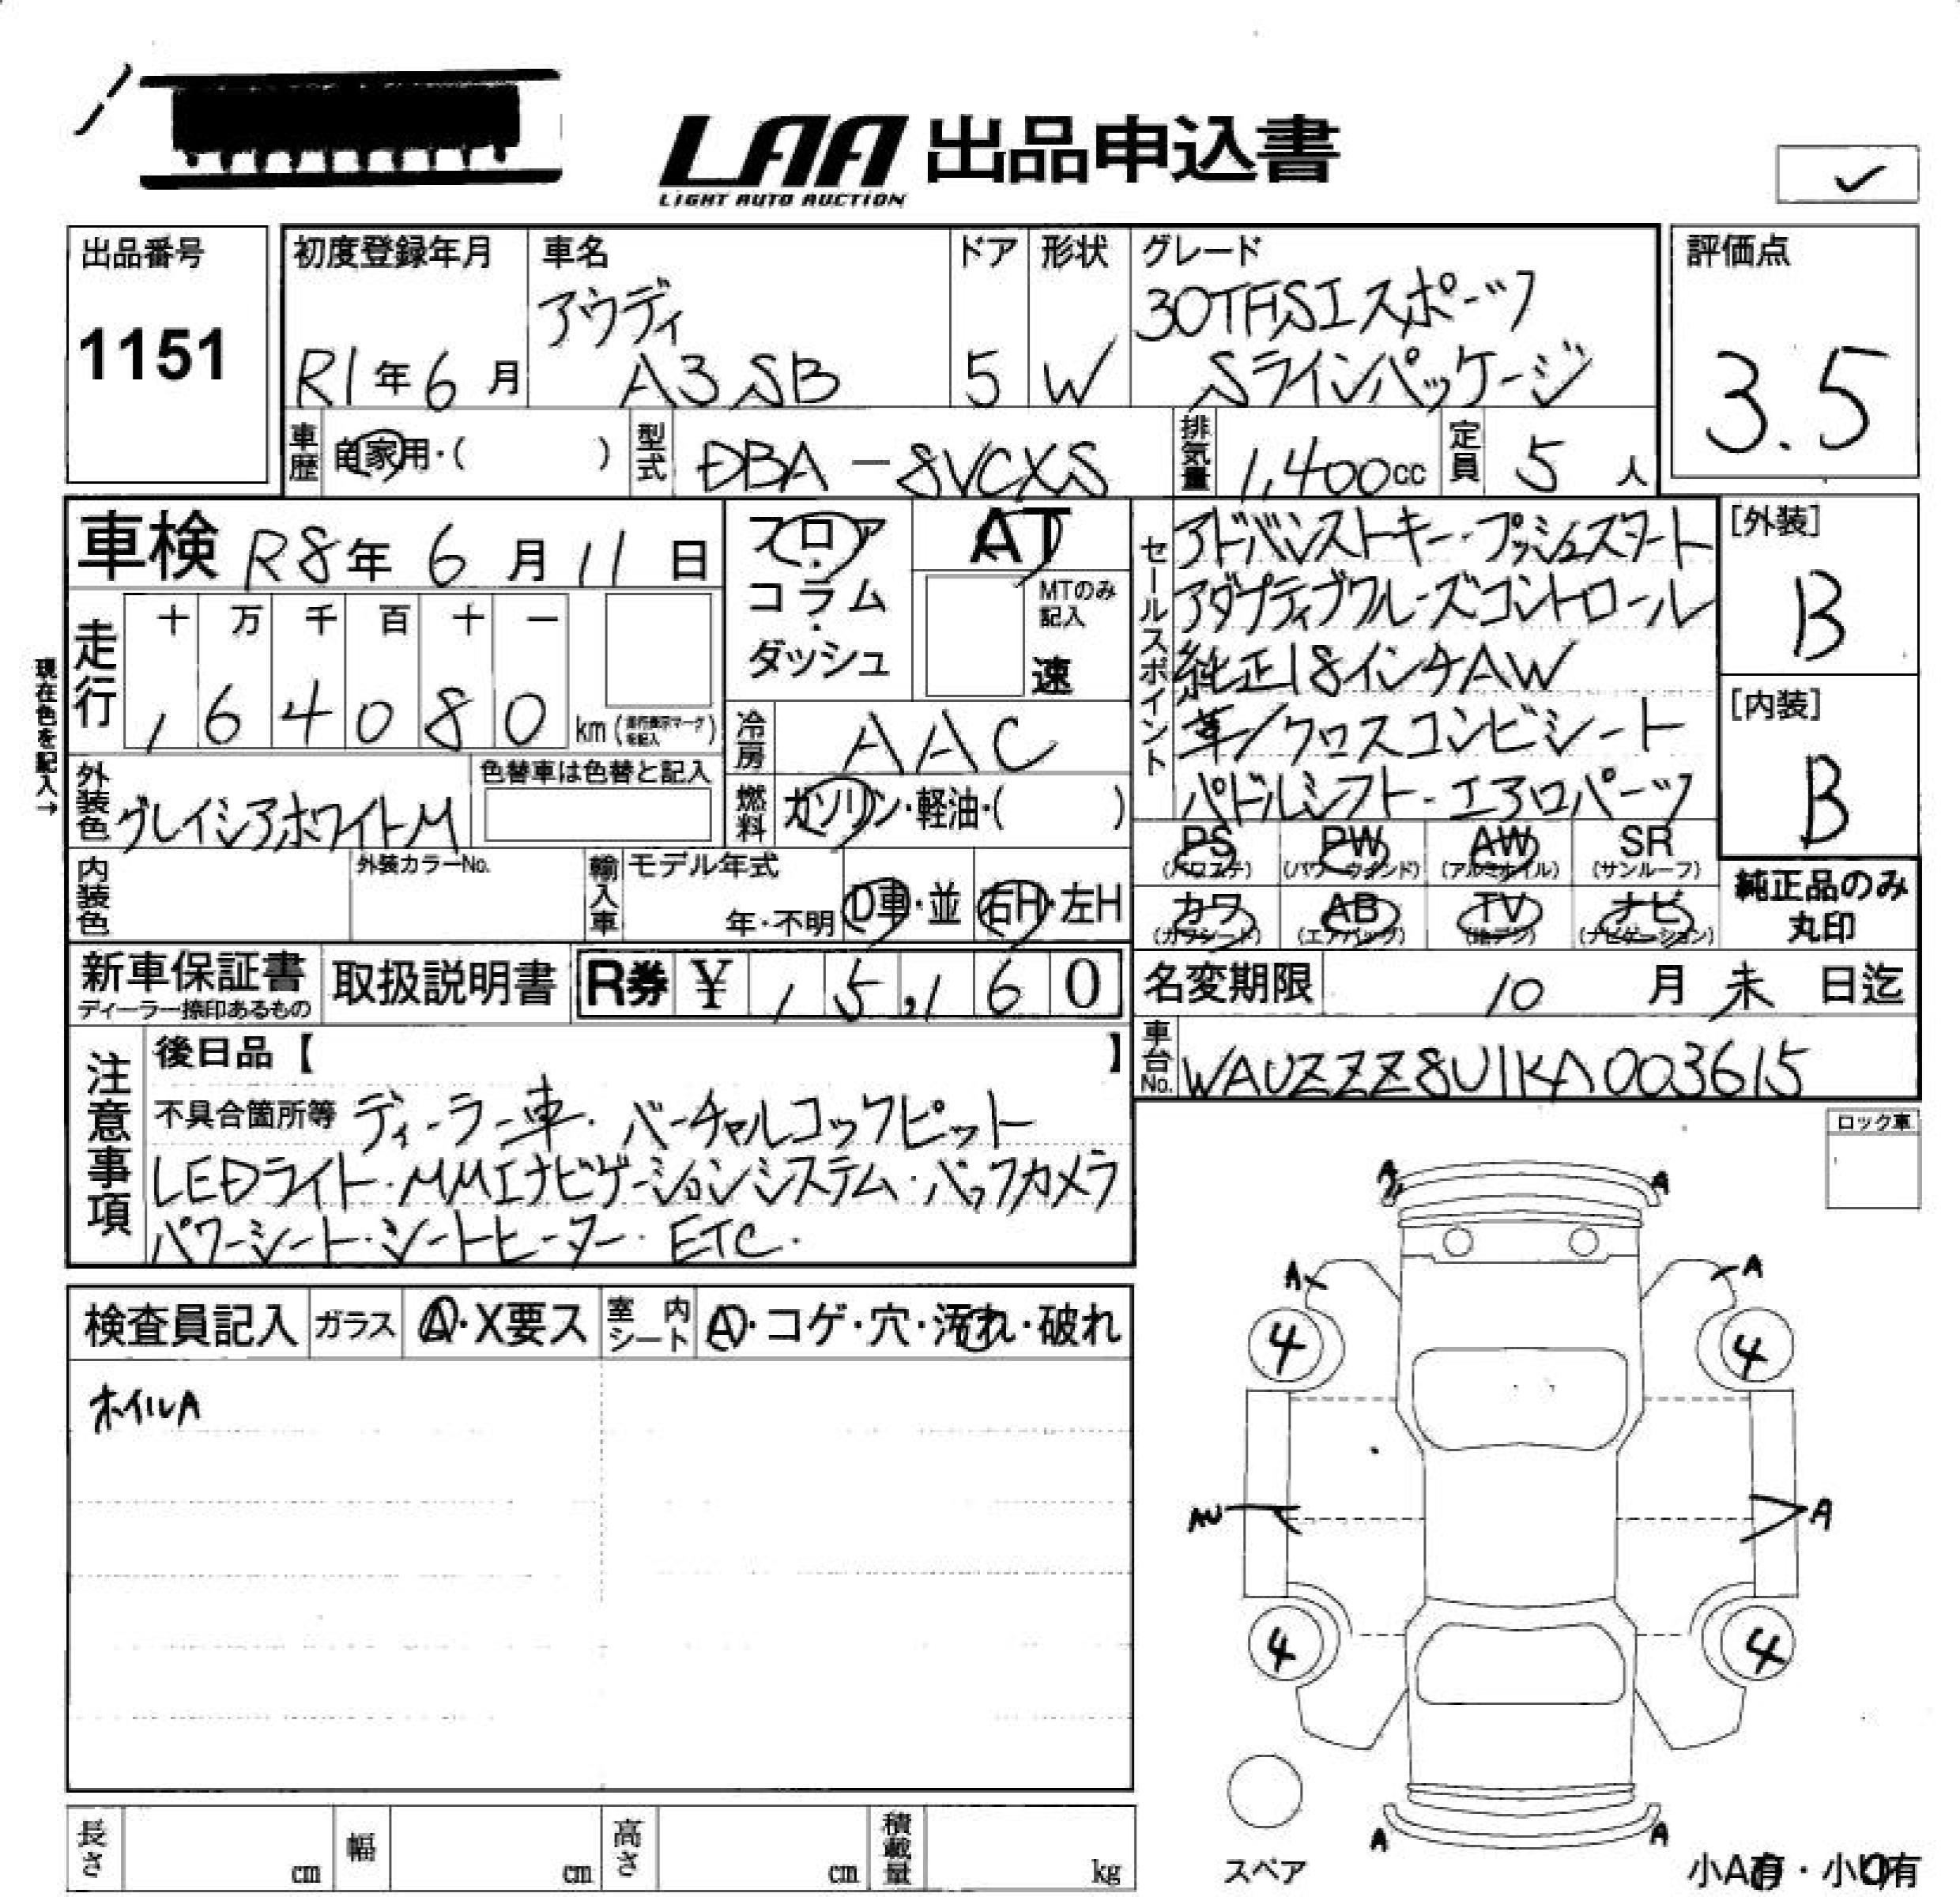 LAA 出品申込書
LIGHT AUTO AUCTION
出品番号
1151
初度登録年月
R1年6月
車名
アウディ
A3 SB
ドア
5
形状
W
グレード
30TFSIスポーツ
Sラインパッケージ
評価点
3.5
車歴
自家用・( )
型式
DBA-8VCXS
排気量
1,400cc
定員
5人
車検 R8年6月11日
フロア・コラム・ダッシュ
AT
MTのみ記入
速
現在色を記入→
走行
十 万 千 百 十 一
, 6 4 0 8 0 km
冷房
AAC
外装色
グレイシアホワイトM
色替車は色替と記入
燃料
ガソリン・軽油・( )
内装色
外装カラーNo.
輸入車
モデル年式
年・不明
D車・並
右H・左H
セールスポイント
アドバンストキー・プッシュスタート
アダプティブクルーズコントロール
純正18インチAW
革/クロスコンビシート
パドルシフト・エアロパーツ
[外装]
B
[内装]
B
PS (パワステ)
PW (パワーウインド)
AW (アルミホイル)
SR (サンルーフ)
カワ (カワシート)
AB (エアバッグ)
TV (地デジ)
ナビ (ナビゲーション)
純正品のみ
丸印
新車保証書
ディーラー捺印あるもの
取扱説明書
R券 ¥ 15,160
名変期限 10月末日迄
車台No. WAUZZZ8V1KA003615
注意事項
後日品【 】
不具合箇所等 ディーラー車・バーチャルコックピット
LEDライト・MMIナビゲーションシステム・バックカメラ
パワーシート・シートヒーター・ETC・
ロック車
検査員記入
ガラス
A・X要ス
室内シート
A・コゲ・穴・汚れ・破れ
ホイルA
A
A
A
A
4
4
AU
A
4
4
A
A
スペア
小A有・小U有
長さ cm
幅 cm
高さ cm
積載量 kg